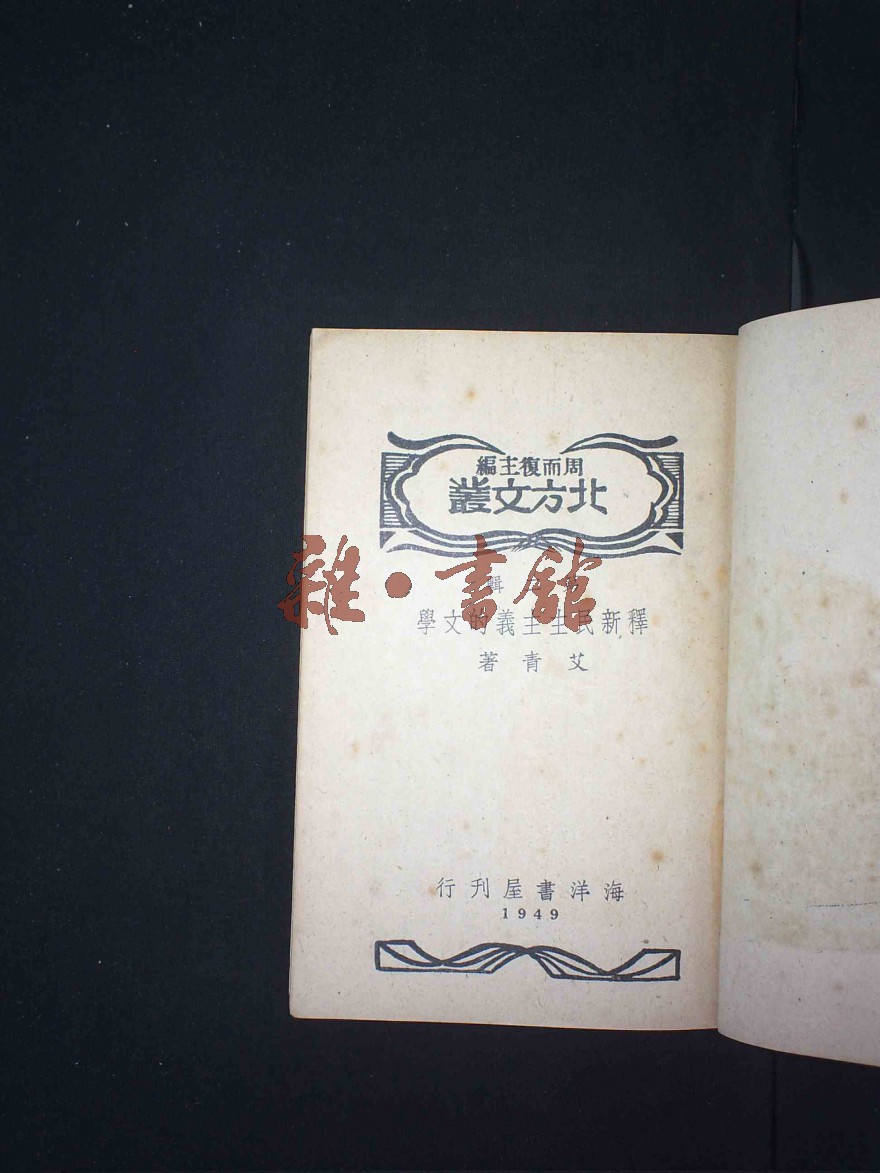 周而復主編
北方文叢
輯
釋新民主主義的文學
艾青著
海洋書屋刊行
1949
雜·書館